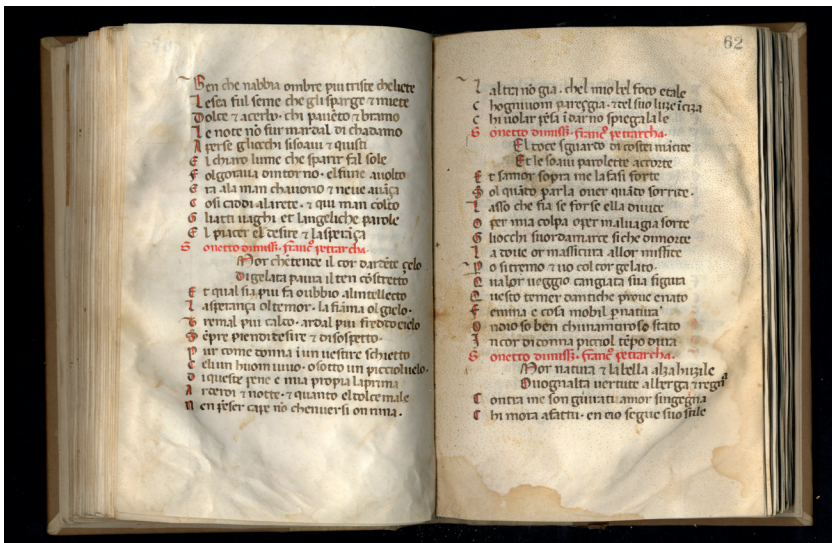 Ben che nabbia ombre piu triste cheliete
Lesea ful seme che gli sparge ⁊ miete
Dolce ⁊ acerbo· chi pauēto ⁊ bramo
Le note nō fur mai dal di chadamo
Aperse gliocchi si soaui ⁊ quisti
El chiaro lume che sparir fal sole
Folgoraua dintorno· el fune auolto
Era ala man chauorio ⁊ neue auāça
Cosi caddi alarete· ⁊ qui man colto
Gliatti uaghi et langeliche parole
El piacer el desire ⁊ lasperāça
Sonetto dimissi· franc° petrarcha·
Amor chētende il cor dardēte çelo
Di gelata paura il ten cōstretto
Et qual sia piu fa dubbio alintellecto
Lasperança oltemor· la fiāma ol gielo·
Tremal piu caldo· ardal piu freddo cielo
Sēpre pien di desire ⁊ di sospetto·
Pur come donna i un uestire schietto
Celi un huom uiuo· o sotto un picciol uelo·
Di queste pene e mia propia la prima
Arder di ⁊ notte· ⁊ quanto el dolce male
Nen pēser cape nō chenuersi on rima·
62
Laltra nō gia· chel mio bel foco e tale
Chogniuom pareggia· ⁊ del suo lume ī cima
Chi uolar pēsa ī darno spiega lale
Sonetto dimissi· franc° petrarcha·
El dolce sguardo di costei mācide
Et le soaui parolette accorte
Et samor sopra me la fa si forte
Sol quāto parla ouer quāto sorride·
Lasso che fia se forse ella diuide
O per mia colpa o per maluagia sorte
Gliocchi suor da marte si che di morte
La doue or massicura allor misfide
Po si tremo ⁊ uo col cor gelato·
Qualor ueggio cangiata sua figura
Questo temer dantiche proue e nato
Femina e cosa mobil p̄ natura
Ondio so ben chunamoroso stato
In cor di donna picciol tēpo dura
Sonetto dimissi· franc° petrarcha·
Amor natura ⁊ la bella alza humile
Ouognalta uertute alberga ⁊ regna
Contra me son giurati amor singegna
Chi mora afatto· en cio segue suo stile